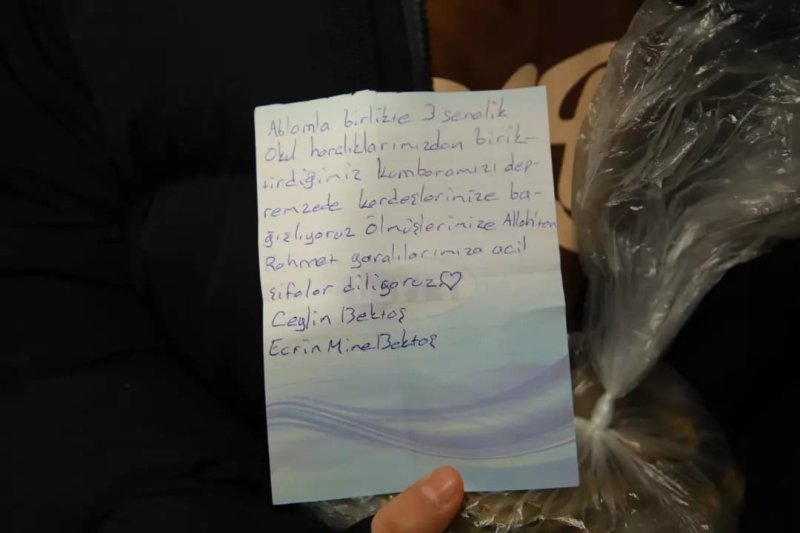 Ablamla birlikte 3 senelik
Okul harçlıklarımızdan birik-
tirdiğimiz kumbaramızı dep-
remzede kardeşlerimize ba-
ğışlıyoruz Ölmüşlerimize Allah'tan
Rahmet yaralılarımıza acil
şifalar diliyoruz♡
Ceylin Bektaş
Ecrin Mine Bektaş